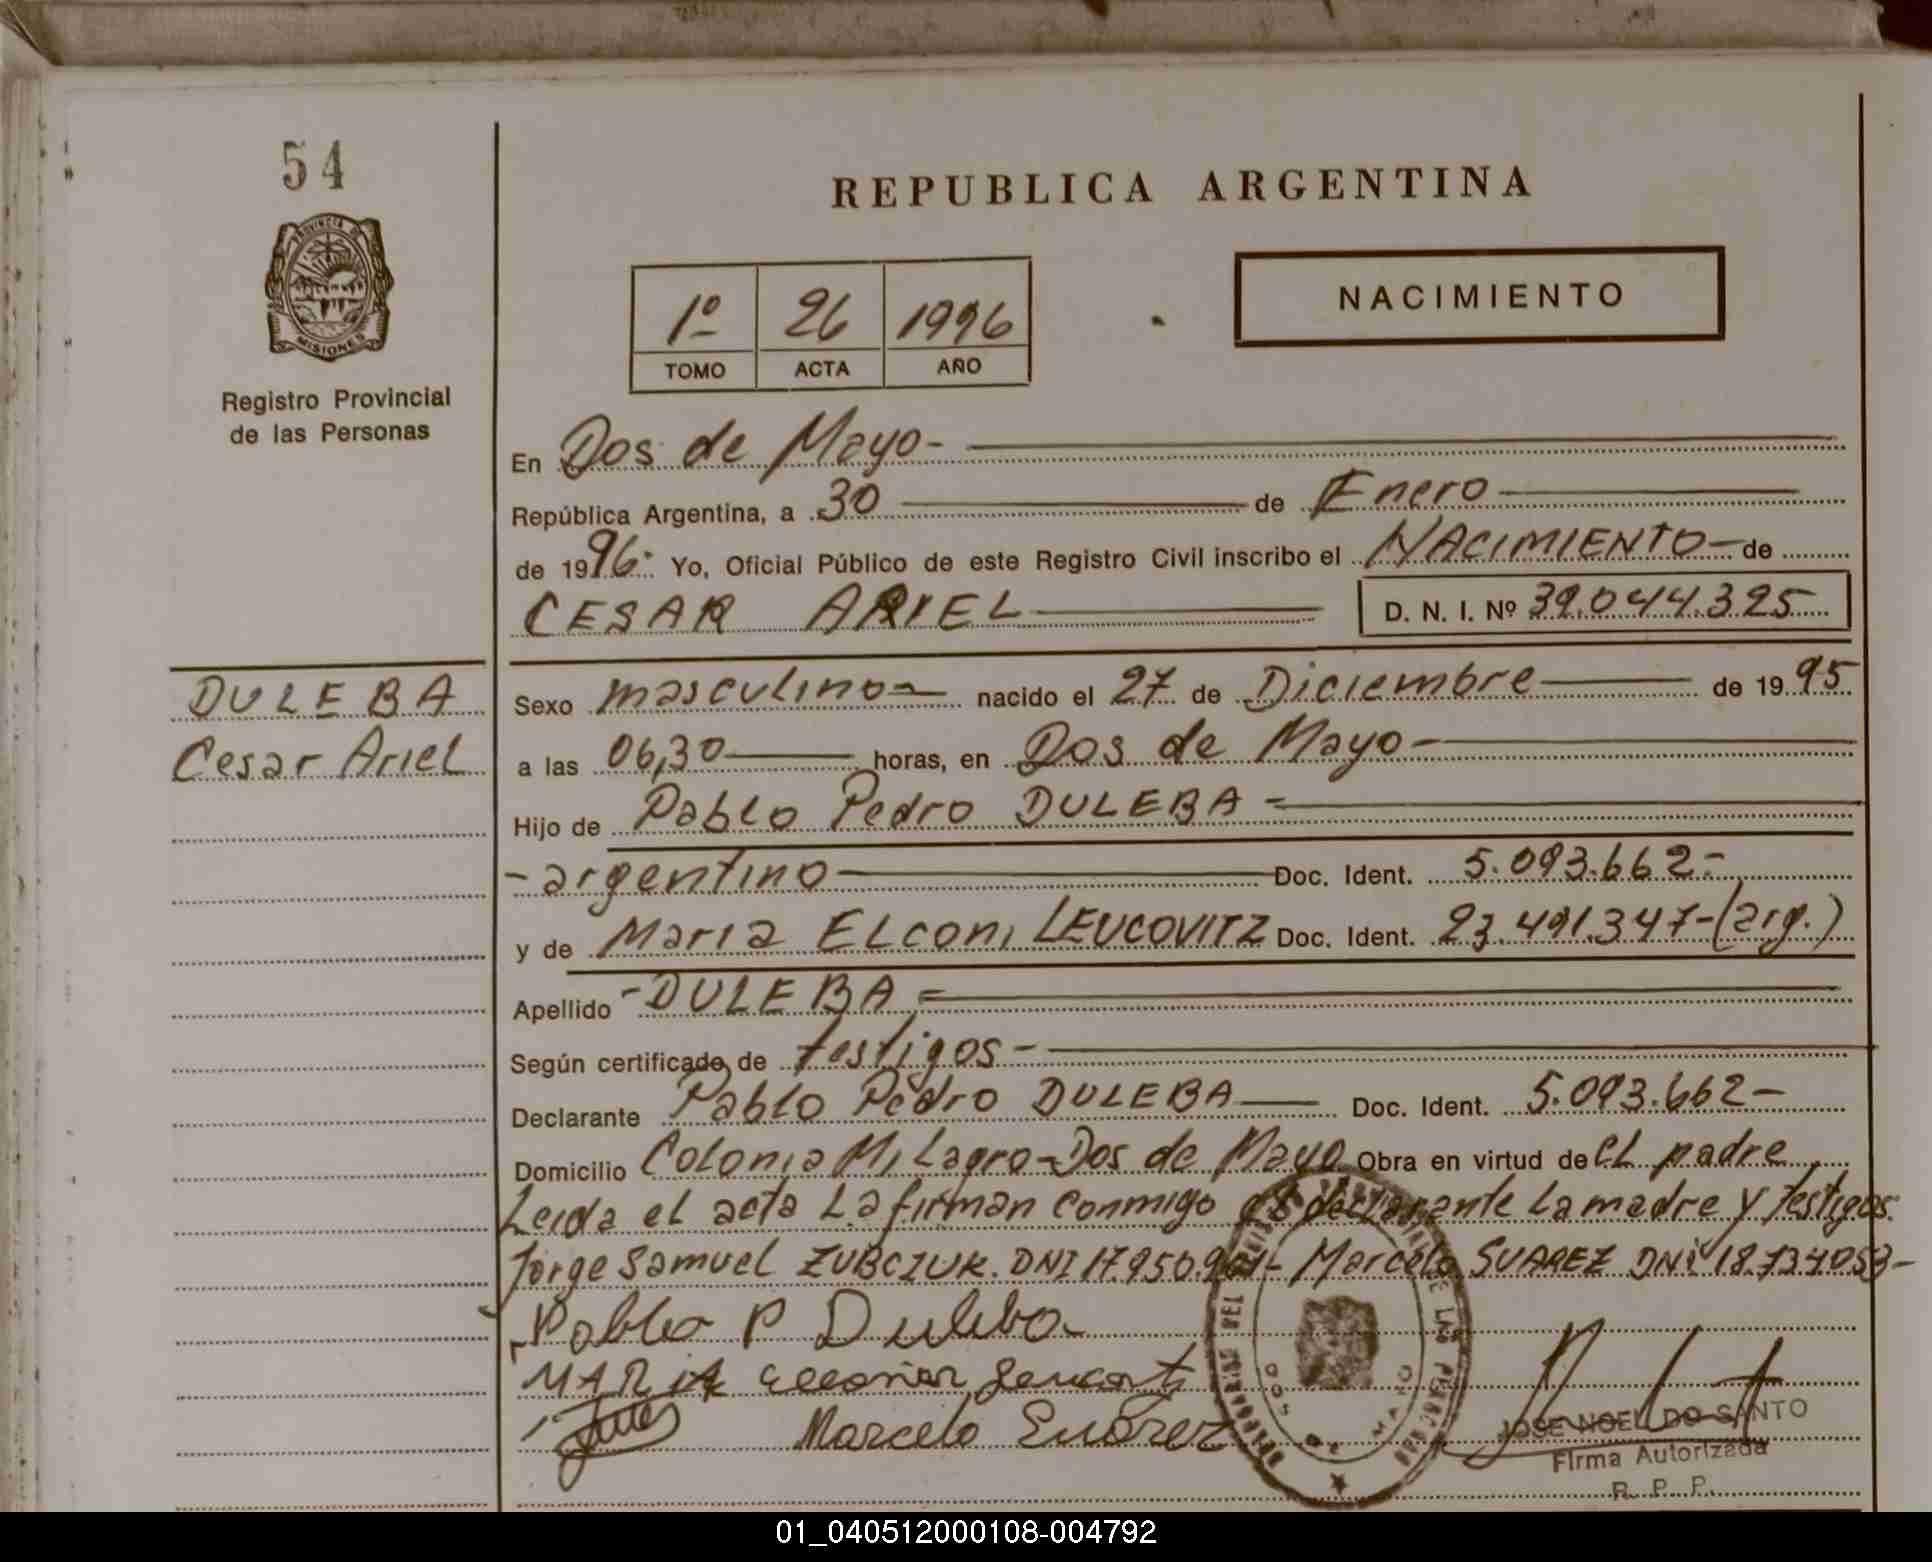 54
REPUBLICA ARGENTINA
PROVINCIA DE
MISIONES
Registro Provincial
de las Personas
1º 26 1996
TOMO ACTA AÑO
NACIMIENTO
En Dos de Mayo-
República Argentina, a 30 de Enero
de 1996. Yo, Oficial Público de este Registro Civil inscribo el NACIMIENTO- de
CESAR ARIEL D. N. I. Nº 39.044.325
DULEBA
Cesar Ariel
Sexo masculino- nacido el 27 de Diciembre de 1995
a las 06,30 horas, en Dos de Mayo-
Hijo de Pablo Pedro DULEBA-
-argentino Doc. Ident. 5.093.662-
y de Maria ELconi LEUCOVITZ Doc. Ident. 23.491.347-(arg.)
Apellido -DULEBA=
Según certificado de testigos-
Declarante Pablo Pedro DULEBA Doc. Ident. 5.093.662-
Domicilio Colonia Milagro-Dos de Mayo Obra en virtud de el padre
Leida el acta La firman conmigo declarante La madre y testigos.
Jorge Samuel ZUBCZUK. DNI 17.950. - Marcelo SUAREZ DNI 18.734053-
Pablo P Duleba
MARIA
Marcelo Suárez
DOS DE MAYO
JOSE NOEL DO SANTO
Firma Autorizada
R. P. P.
01_040512000108-004792